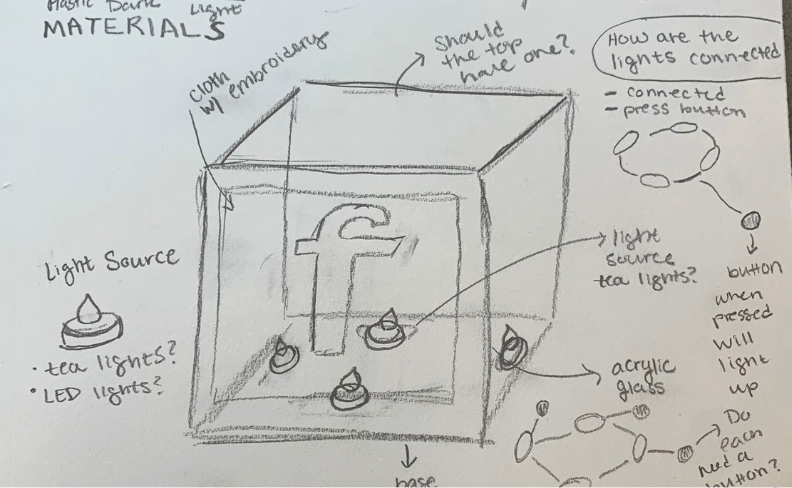 Plastic Dark Light
MATERIALS
cloth
w/ embroidery
Should
the top
have one?
How are the
lights connected
- connected
- press button
f
Light Source
• tea lights?
• LED lights?
light
source
tea lights?
button
when
pressed
will
light
up
acrylic
glass
Do
each
need a
button?
base